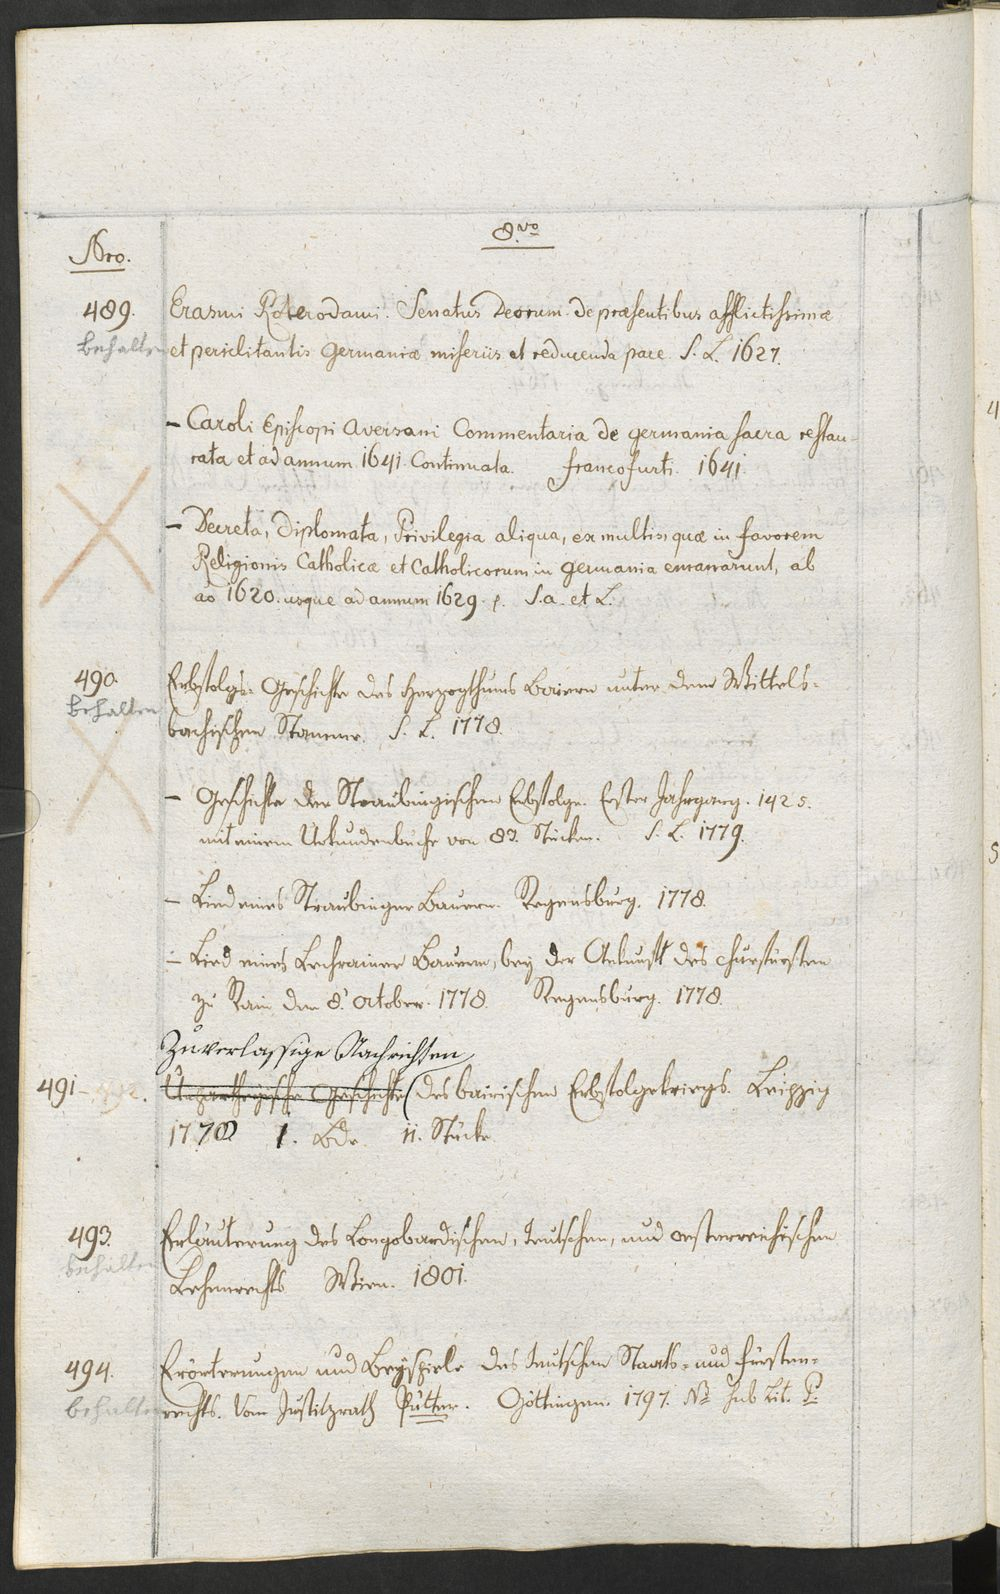 8.vo
Nro.
489.
behalten
Erasmi Roterodami. Senatus Deorum de præsentibus afflictissimæ
et periclitantis Germaniæ miseriis et reducenda pace. S. L. 1627.
- Caroli Episcopi Aversani Commentaria de Germania sacra restau-
rata et ad annum 1641. Continuata. Francofurti. 1641.
- Decreta, Diplomata, Privilegia aliqua, ex multis, quæ in favorem
Religionis Catholicæ et Catholicorum in Germania emanarunt, ab
ao 1620. usque ad annum 1629. p. S. a. et L.
490.
behalten
Erbfolgs-Geschichte des Herzogthums Baiern unter dem Wittels-
bachischen Stamme. S. L. 1778.
- Geschichte der Straubingischen Erbfolge. Erster Jahrgang. 1425.
mit einem Urkundenbuche von 83. Stücken. S. L. 1779.
- Lied eines Straubinger Bauern. Regensburg. 1778.
- Lied eines Lechrainer Bauern, bey der Ankunft des Churfürsten
zu Rain den 8. October. 1778. Regensburg. 1778.
Zuverlassige Nachrichten
491-492.
Unpartheyische Geschichte (des bairischen Erbfolgekriegs. Leipzig
1778 1. Bde. 11. Stücke.
493.
behalten
Erläuterung des Longobardischen, teutschen, und oesterreichischen
Lehenrechts Wien. 1801.
494.
behalten
Erörterungen und Beyspiele des teutschen Staats- und Fürsten-
rechts. Vom Justitzrath Pütter. Göttingen. 1797. Nb sub Lit. P.